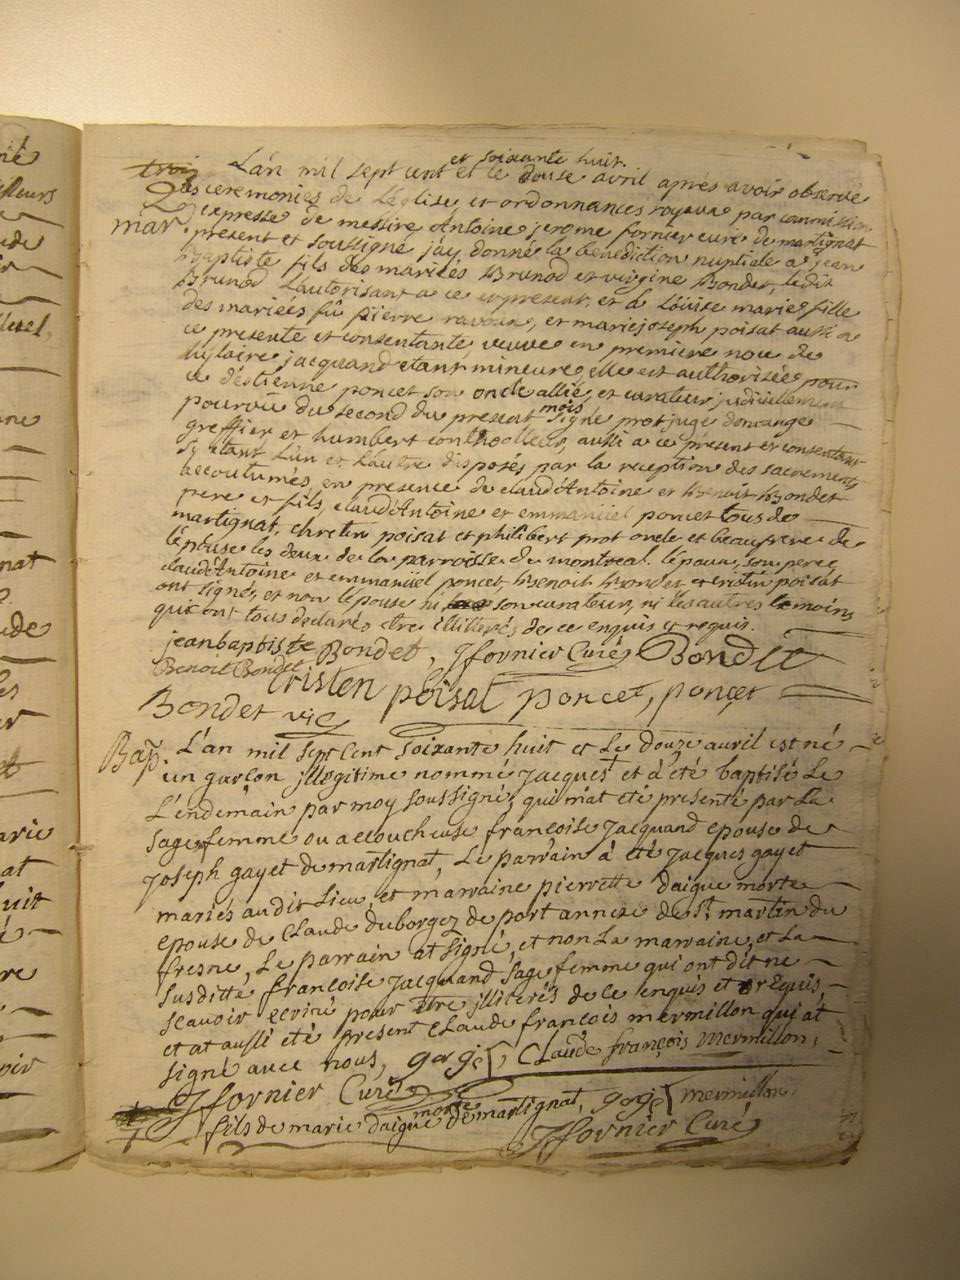 L'an mil sept cent et soixante huit et le douse avril aprés avoir observé
trois
Les ceremonies de L'église et ordonnances royaux par commission
mar
expresse de messire Antoine jerome fornier curé de martignat
present et soussigné j'ay donné la bénédiction nuptiale a jean
Baptiste fils des mariés Brunod et virgine Bondet, ledit
Brunod L'autorisant a ce et present, et à Loüise marie fille
des mariées fû pierre ravoux, et marie joseph poisat aussi a
ce presente et consentante, veuve en premiere noce de
hylaire jacquand etant mineure, elle est authorisée pour
ce d'éstienne poncet son oncle allié, et curateur judiciellement
pourvû du second du present mois signé prot juge donrange
greffier et humbert controlleur, aussi a ce present et consentant
s'y etant L'un et L'autre disposés par la reception des sacrements
accoutumés, en presence de claud'Antoine et Benoit Bondet
pere et fils, claud'Antoine et emmanüel poncet tous de
martignat, chretin poisat et philibert prot oncle et beaufrere de
l'épouse les deux de la parroisse de montreal. l'époux, son pere,
claud'Antoine et emmanüel poncet, Benoit Bondet et cristin poisat
ont signés, et non l'épouse ni son curateur, ni les autres temoins
qui ont tous declarés etre illiterés de ce enquis et requis.
jean baptiste Bondet, Jfornier Curé Bondet
Benoit Bondet Cristen poisat poncet, ponçet
Bondet vic
Bap. L'an mil sept cent soixante huit et Le douze auril est né
un garçon illegitime nommé Jacques † et à été baptisé Le
L'endemain par moy soussigné, qui m'at eté presenté par La
sage femme ou accoucheuse francoise Jacquand epouse de
Joseph gayet de martignat, Le parrain à eté Jacques gayet
mariés audit Lieu, et marraine pierrette Daigue morte
epouse de Claude duborgez de port annexe de St martin du
fresne, Le parrain at signé, et non La marraine, et La
susditte francoise Jacquand sage femme qui ont dit ne
scavoir ecrire pour être jlliterés de ce enquis et requis,
et at aussi eté present Claude françois mermillon qui at
signé avec nous, gagé, Claude françois mermillon,
Jfornier Curé
† fils de marie daigue morte de martignat, gagé mermillon
Jfornier Curé